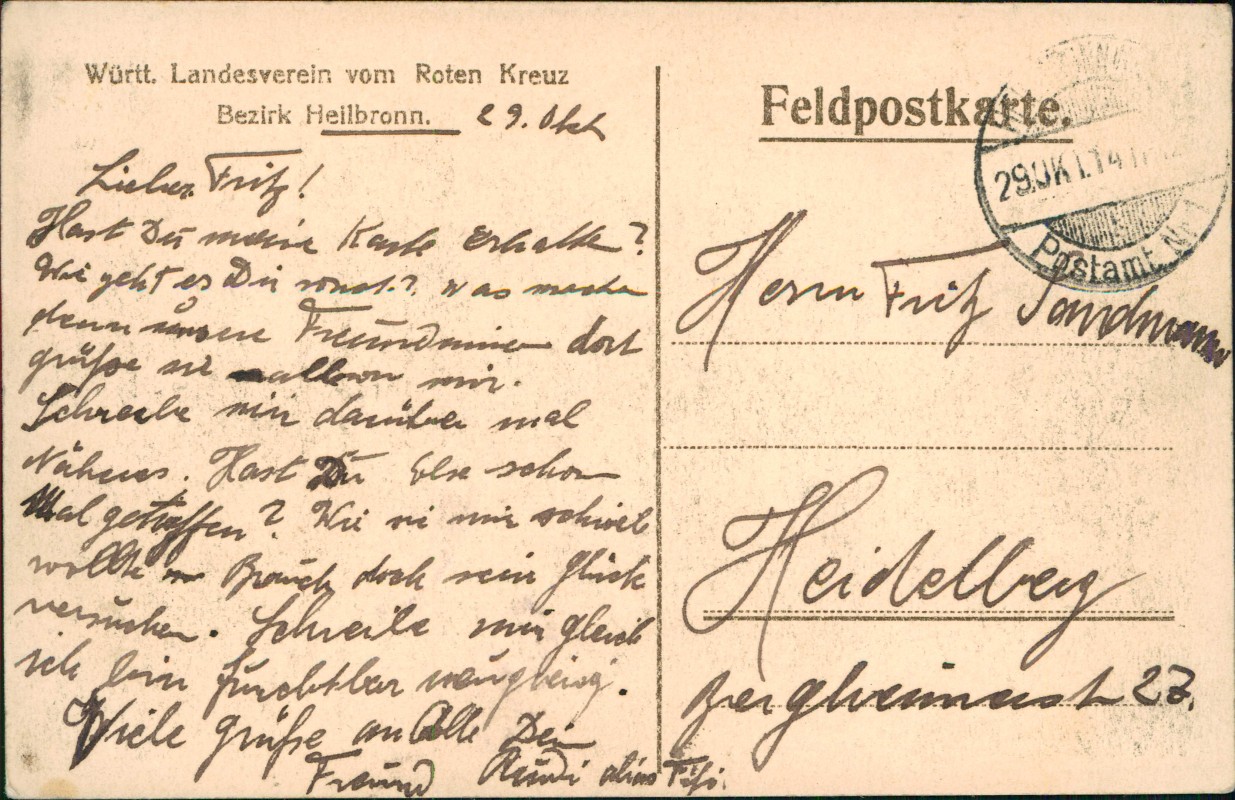 Württ. Landesverein vom Roten Kreuz
Bezirk Heilbronn. 29. Okt
Lieber Fritz!
Hast Du meine Karte erhalten?
Wie geht es Dir sonst? Was machen
denn unsere Freundinnen dort
grüße sie allen mir.
Schreibe mir darüber mal
Näheres. Hast Du Else schon
Mal getroffen? Wie sie mir schrieb
wollte doch sein Glück
versuchen. Schreibe mir gleich
ich bin furchtbar neugierig.
Viele Grüße an Alle Dein
Freund Rudi alias Fifi.
Feldpostkarte.
29.OKT.14
Postamt Nr 1
Herrn Fritz Sandmann
Heidelberg
Bergheimerst 27.